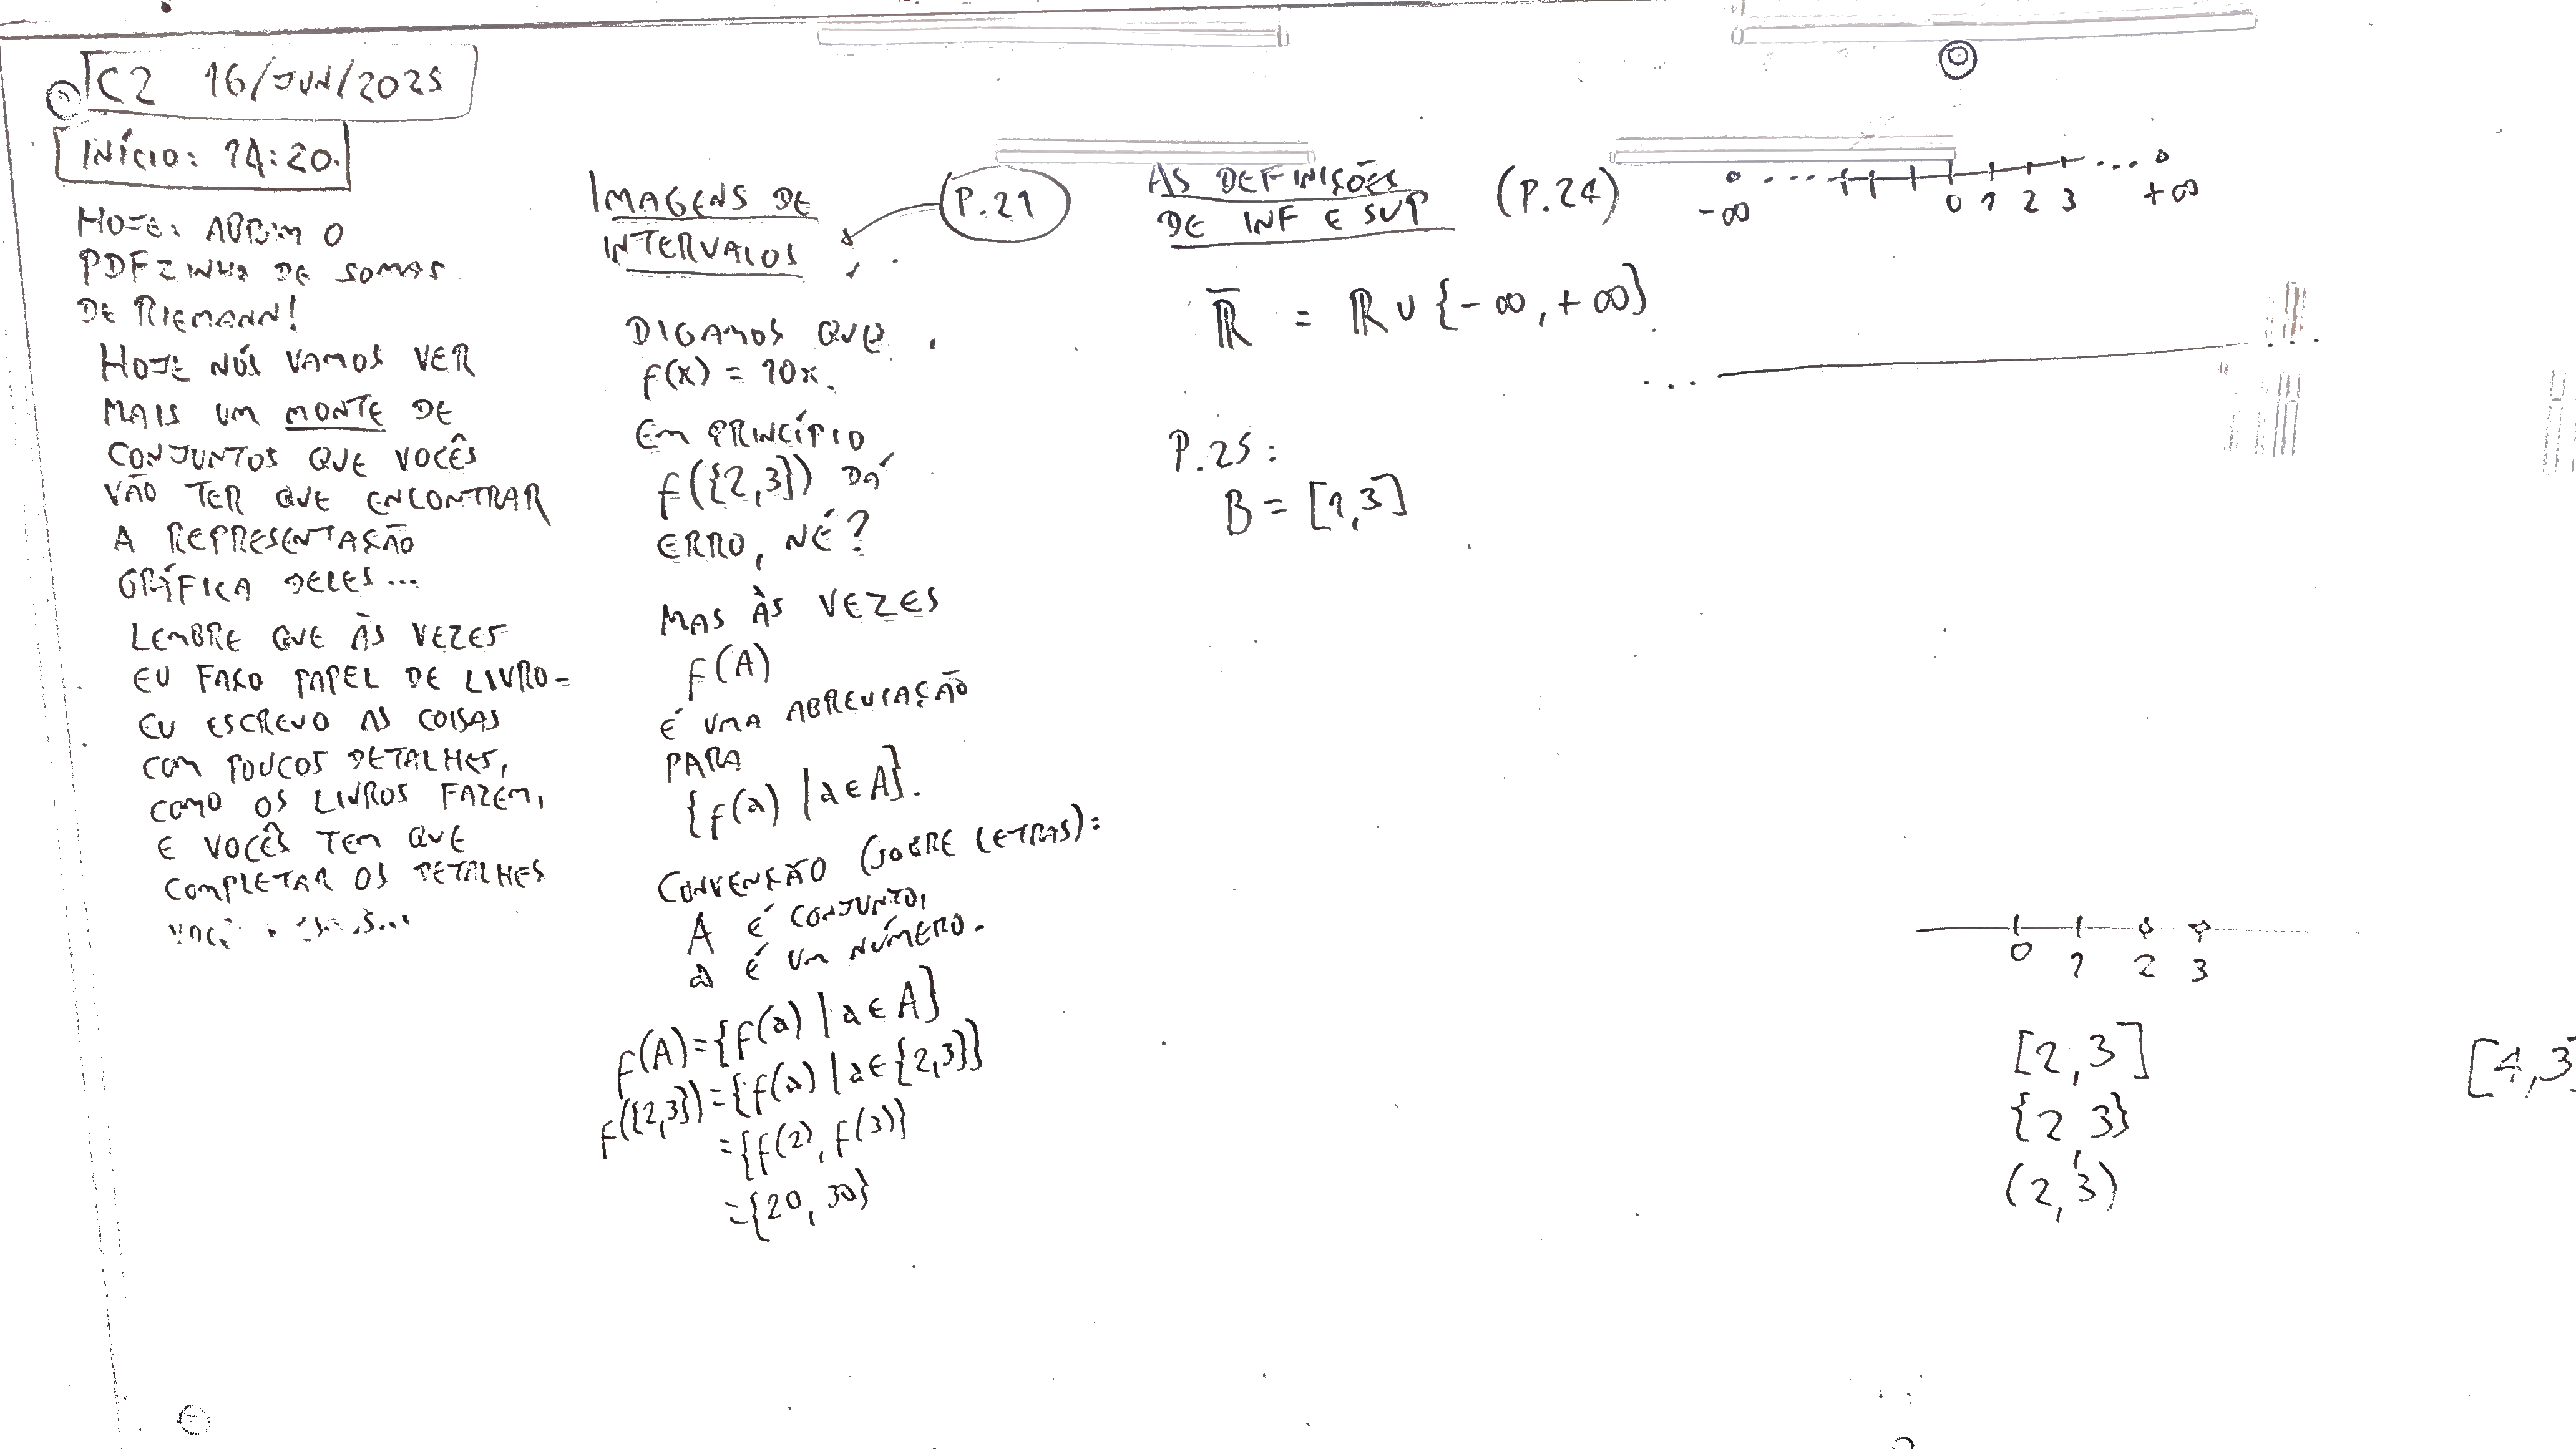 C2 16/JUN/2025
INÍCIO: 14:20.
HOJE: ABRAM O
PDFZINHO DE SOMAS
DE RIEMANN!
HOJE NÓS VAMOS VER
MAIS UM MONTE DE
CONJUNTOS QUE VOCÊS
VÃO TER QUE ENCONTRAR
A REPRESENTAÇÃO
GRÁFICA DELES...
LEMBRE QUE ÀS VEZES
EU FAÇO PAPEL DE LIVRO –
EU ESCREVO AS COISAS
COM POUCOS DETALHES,
COMO OS LIVROS FAZEM,
E VOCÊS TEM QUE
COMPLETAR OS DETALHES
IMAGENS DE
INTERVALOS
P.21
DIGAMOS QUE
f(x) = 10x.
EM PRINCÍPIO
f({2,3}) DÁ
ERRO, NÉ?
MAS ÀS VEZES
f(A)
É UMA ABREVIAÇÃO
PARA
{f(a) | a ∈ A}.
CONVENÇÃO (SOBRE LETRAS):
A É CONJUNTO,
a É UM NÚMERO.
f(A) = {f(a) | a ∈ A}
f({2,3}) = {f(a) | a ∈ {2,3}}
= {f(2), f(3)}
= {20, 30}
AS DEFINIÇÕES
DE INF E SUP
(P.24)
-∞ ... 0 1 2 3 ... +∞
R̅ = ℝ ∪ {-∞, +∞}
P.25:
B = [1,3]
0 1 2 3
[2,3]
{2,3}
(2,3)
[4,3]